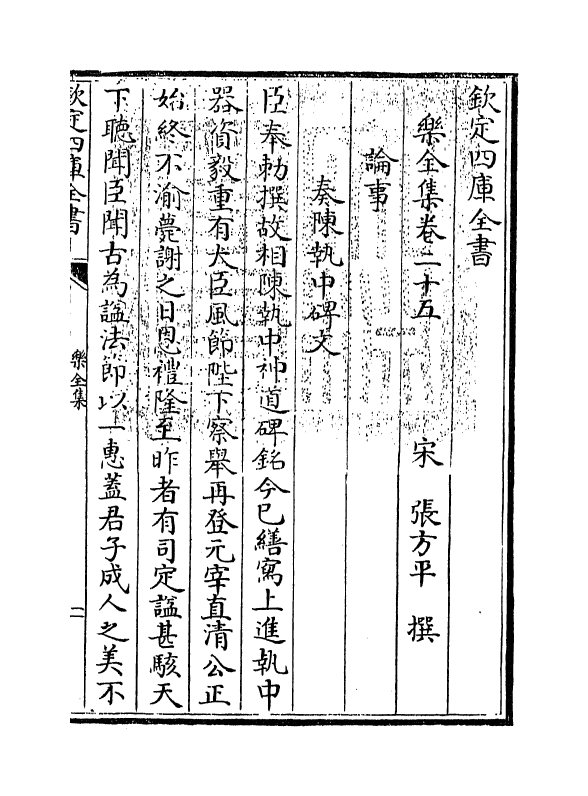 欽定四庫全書
樂全集卷二十五
宋　張方平　撰
論事
奏陳執中碑文
臣奉勅撰故相陳執中神道碑銘今已繕寫上進執中
器資毅重有大臣風節陛下察舉再登元宰直清公正
始終不渝薨謝之日恩禮隆至昨者有司定諡甚駭天
下聽聞臣聞古為諡法節以一惠蓋君子成人之美不
欽定四庫全書
樂全集